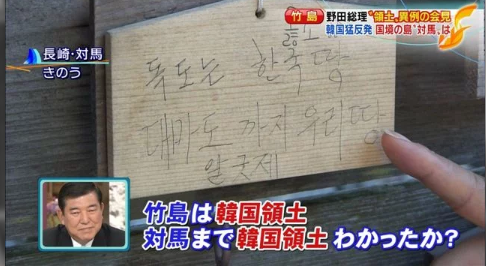 竹島
野田総理“領土”異例の会見
韓国猛反発 国境の島“対馬”は
長崎・対馬
きのう
독도는 한국땅
대마도 까지 우리 땅
竹島は韓国領土
対馬まで韓国領土 わかったか?